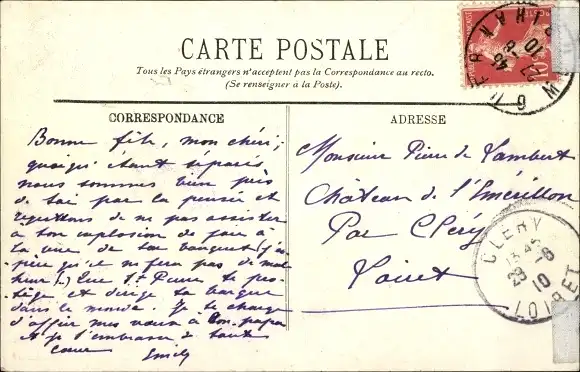 CARTE POSTALE
Tous les Pays étrangers n'acceptent pas la Correspondance au recto.
(Se renseigner à la Poste).
CORRESPONDANCE
ADRESSE
Bonne fête, mon chéri;
quoiqu' étant séparés
nous sommes bien près
de toi par la pensée et
regrettons de ne pas assister
à ton explosion de joie à
la vue de ta barque (j'es-
père qu'il ne fera pas de mal
heur!) Que St Pierre te pro-
tège et dirige ta barque
dans le monde. Je te charge
d'offrir mes vœux à bon-papa
et je t'embrasse de tout
cœur Emily
Monsieur Pierre de Lambert
Château de l'Emérillon
Par Cléry
Loiret
CLERY
28-6
10
LOIRET